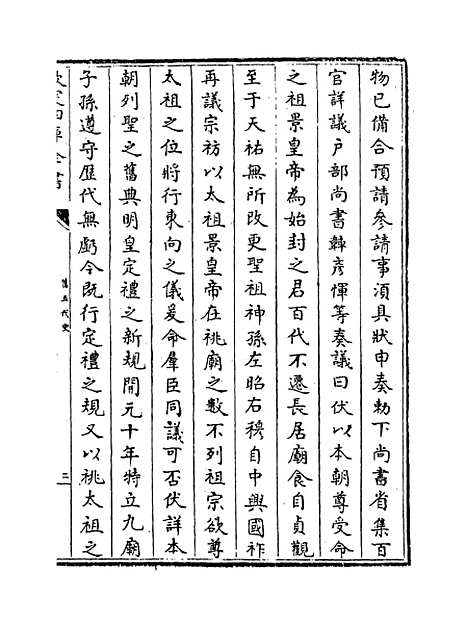 物已備合預請參請事須具狀申奏勅下尚書省集百
官詳議戶部尚書韓彦惲等奏議曰伏以本朝尊受命
之祖景皇帝為始封之君百代不遷長居廟食自貞觀
至于天祐無所改更聖祖神孫左昭右穆自中興國祚
再議宗祊以太祖景皇帝在祧廟之數不列祖宗欲尊
太祖之位將行東向之儀爰命羣臣同議可否伏詳本
朝列聖之舊典明皇定禮之新規開元十年特立九廟
子孫遵守歴代無虧今既行定禮之規又以祧太祖之
欽定四庫全書
舊五代史
三